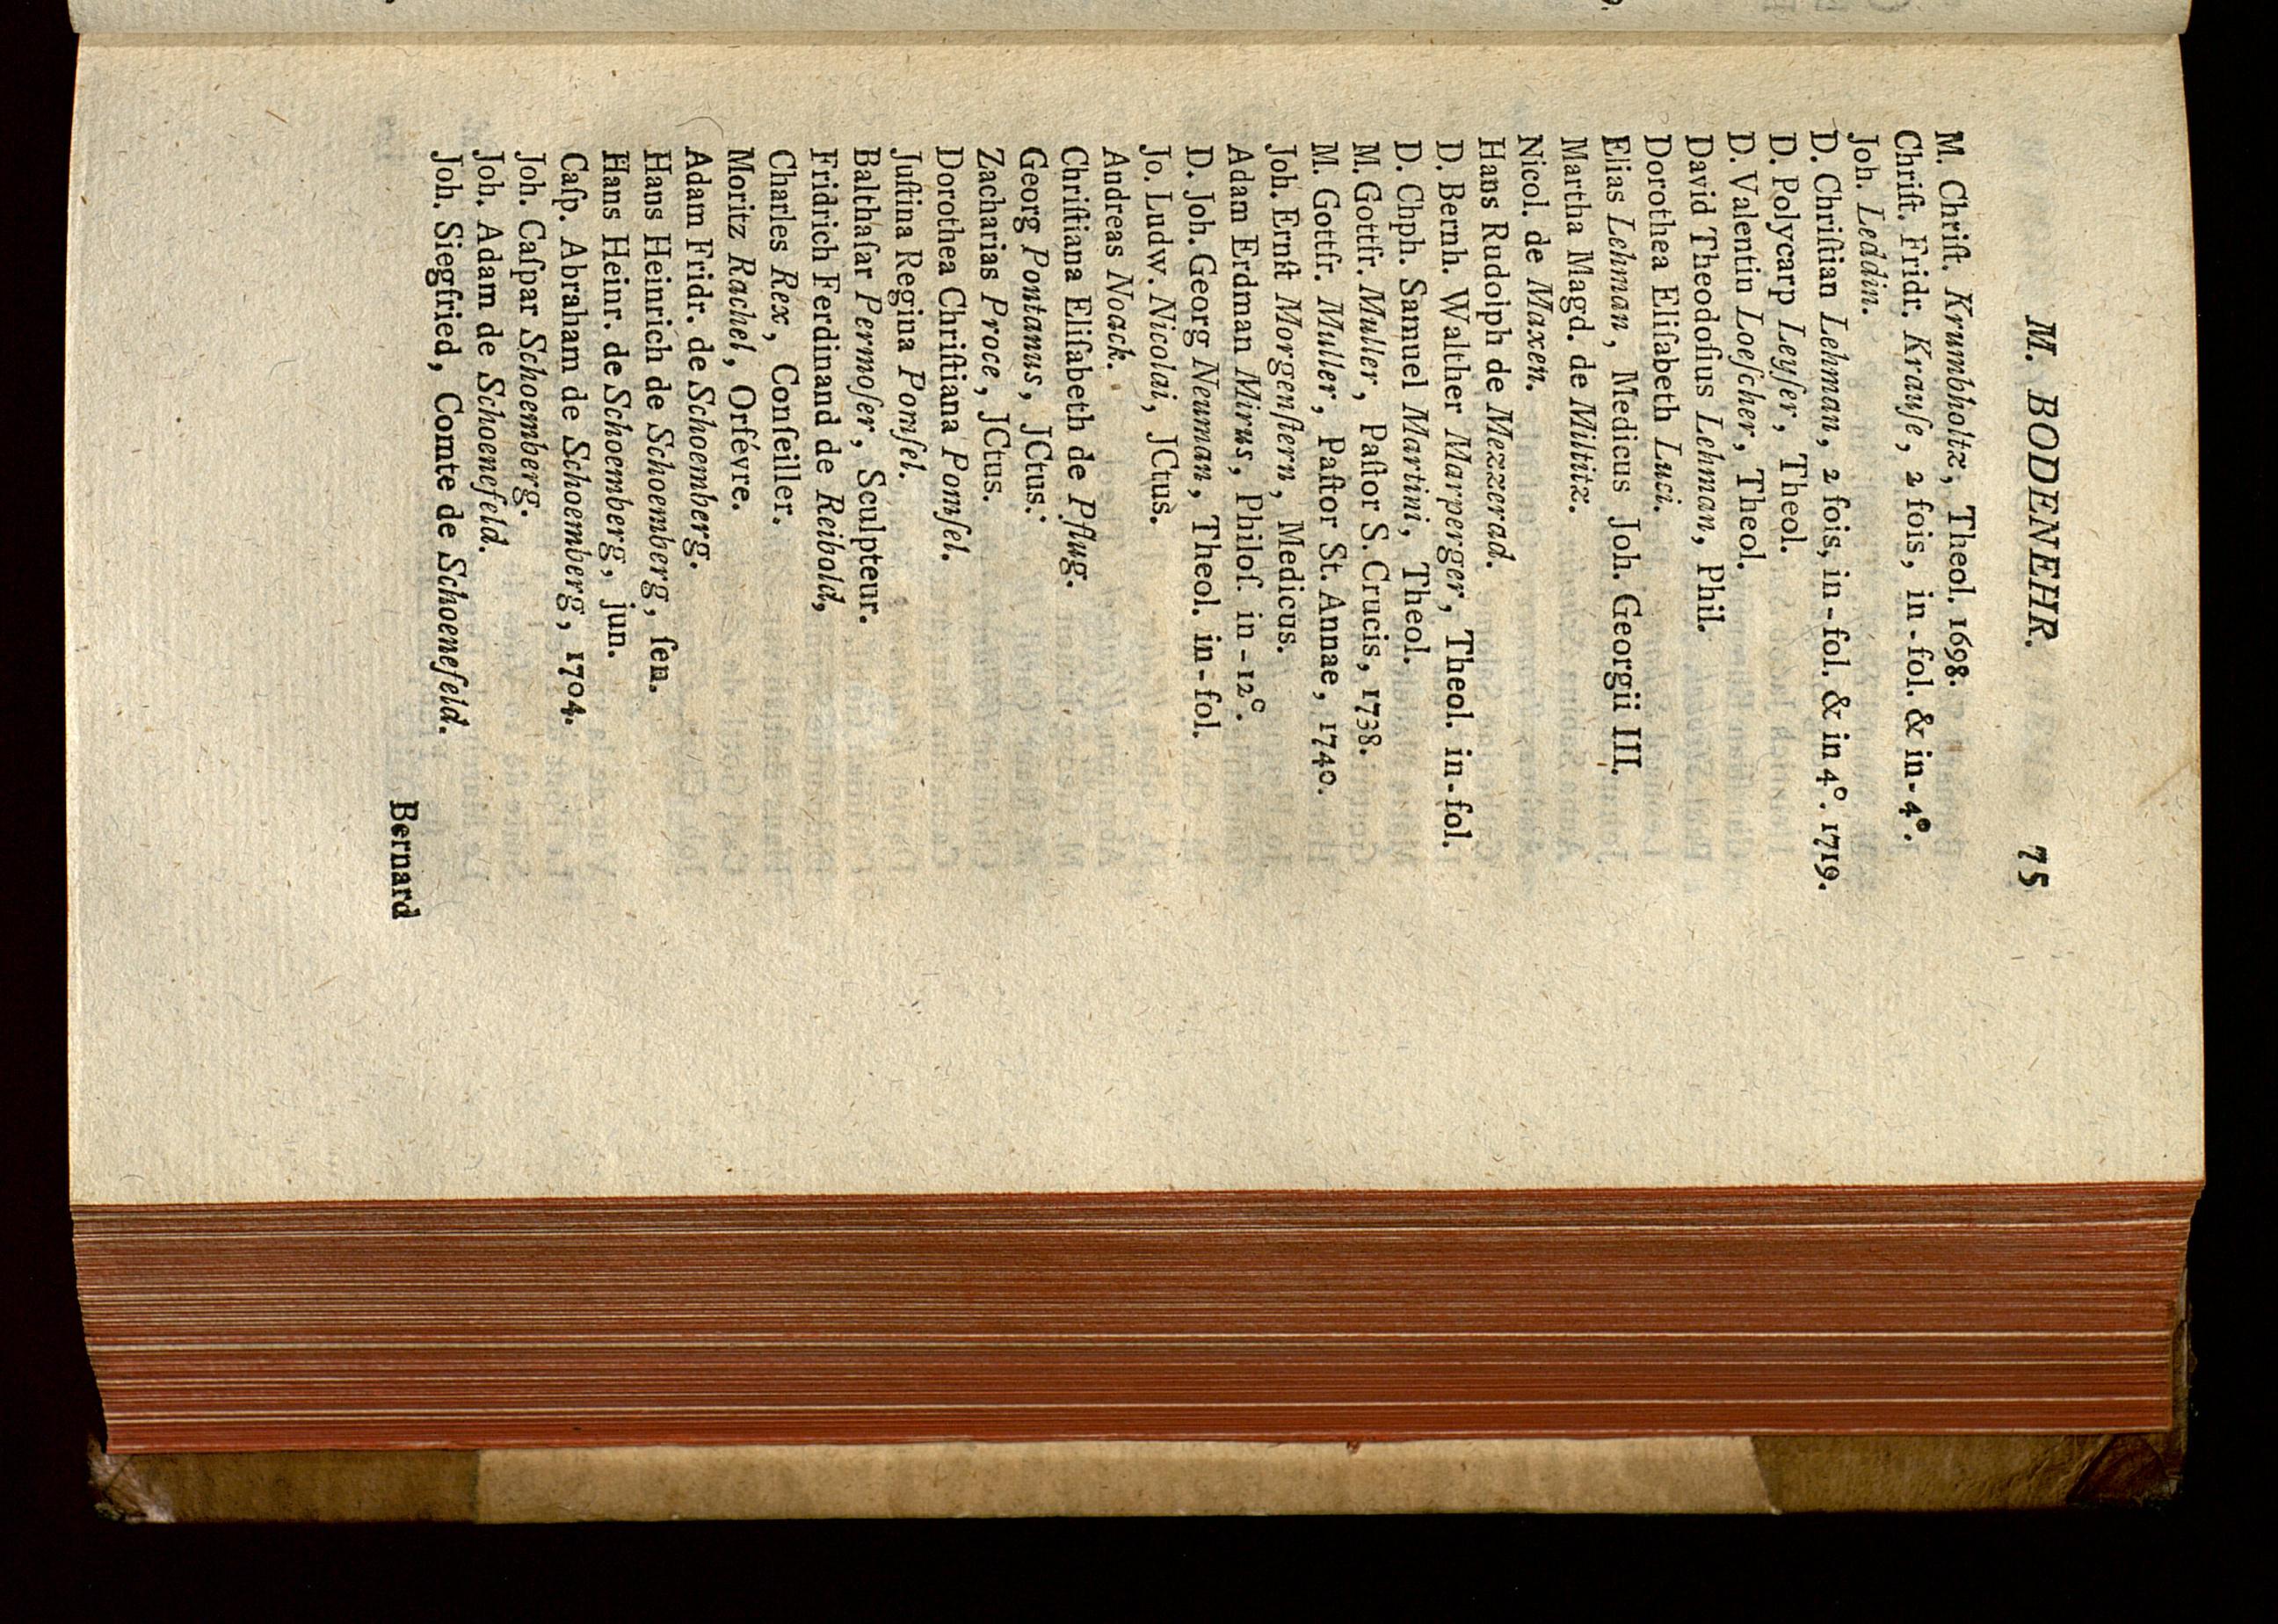 M. BODENEHR. 75
M. Chriſt. Krumbholtz, Theol. 1698.
Chriſt. Fridr. Krauſe, 2 fois, in-fol. & in-4°.
Joh. Leddin.
D. Chriſtian Lehman, 2 fois, in-fol. & in 4°. 1719.
D. Polycarp Leyſer, Theol.
D. Valentin Loeſcher, Theol.
David Theodoſius Lehman, Phil.
Dorothea Eliſabeth Luci.
Elias Lehman, Medicus Joh. Georgii III.
Martha Magd. de Miltitz.
Nicol. de Maxen.
Hans Rudolph de Mezzerad.
D. Bernh. Walther Marperger, Theol. in-fol.
D. Chph. Samuel Martini, Theol.
M. Gottfr. Muller, Paſtor S. Crucis, 1738.
M. Gottfr. Muller, Paſtor St. Annae, 1740.
Joh. Ernſt Morgenſtern, Medicus.
Adam Erdman Mirus, Philoſ. in-12°.
D. Joh. Georg Neuman, Theol. in-fol.
Jo. Ludw. Nicolai, JCtus.
Andreas Noack.
Chriſtiana Eliſabeth de Pflug.
Georg Pontanus, JCtus.
Zacharias Proce, JCtus.
Dorothea Chriſtiana Pomſel.
Juſtina Regina Pomſel.
Balthaſar Permoſer, Sculpteur.
Fridrich Ferdinand de Reibold,
Charles Rex, Conſeiller.
Moritz Rachel, Orfévre.
Adam Fridr. de Schoemberg.
Hans Heinrich de Schoemberg, ſen.
Hans Heinr. de Schoemberg, jun.
Caſp. Abraham de Schoemberg, 1704.
Joh. Caſpar Schoemberg.
Joh. Adam de Schoenefeld.
Joh. Siegfried, Comte de Schoenefeld.
Bernard